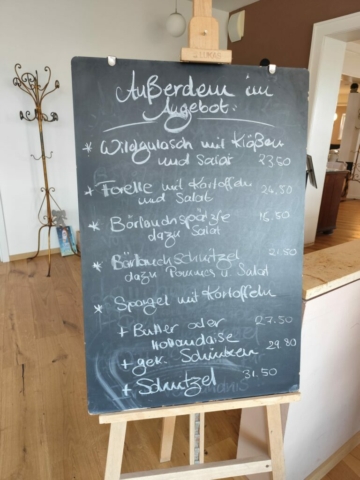 Außerdem im
Angebot:
* Wildgulasch mit Klößen
und Salat 23,50
* Forelle mit Kartoffeln
und Salat 24,50
* Bärlauchspätzle 16,50
dazu Salat
* Bärlauchschnitzel 21.50
dazu Pommes u. Salat
* Spargel mit Kartoffeln
+ Butter oder 27.50
Hollandaise
+ gek. Schinken 29.80
+ Schnitzel 31.50